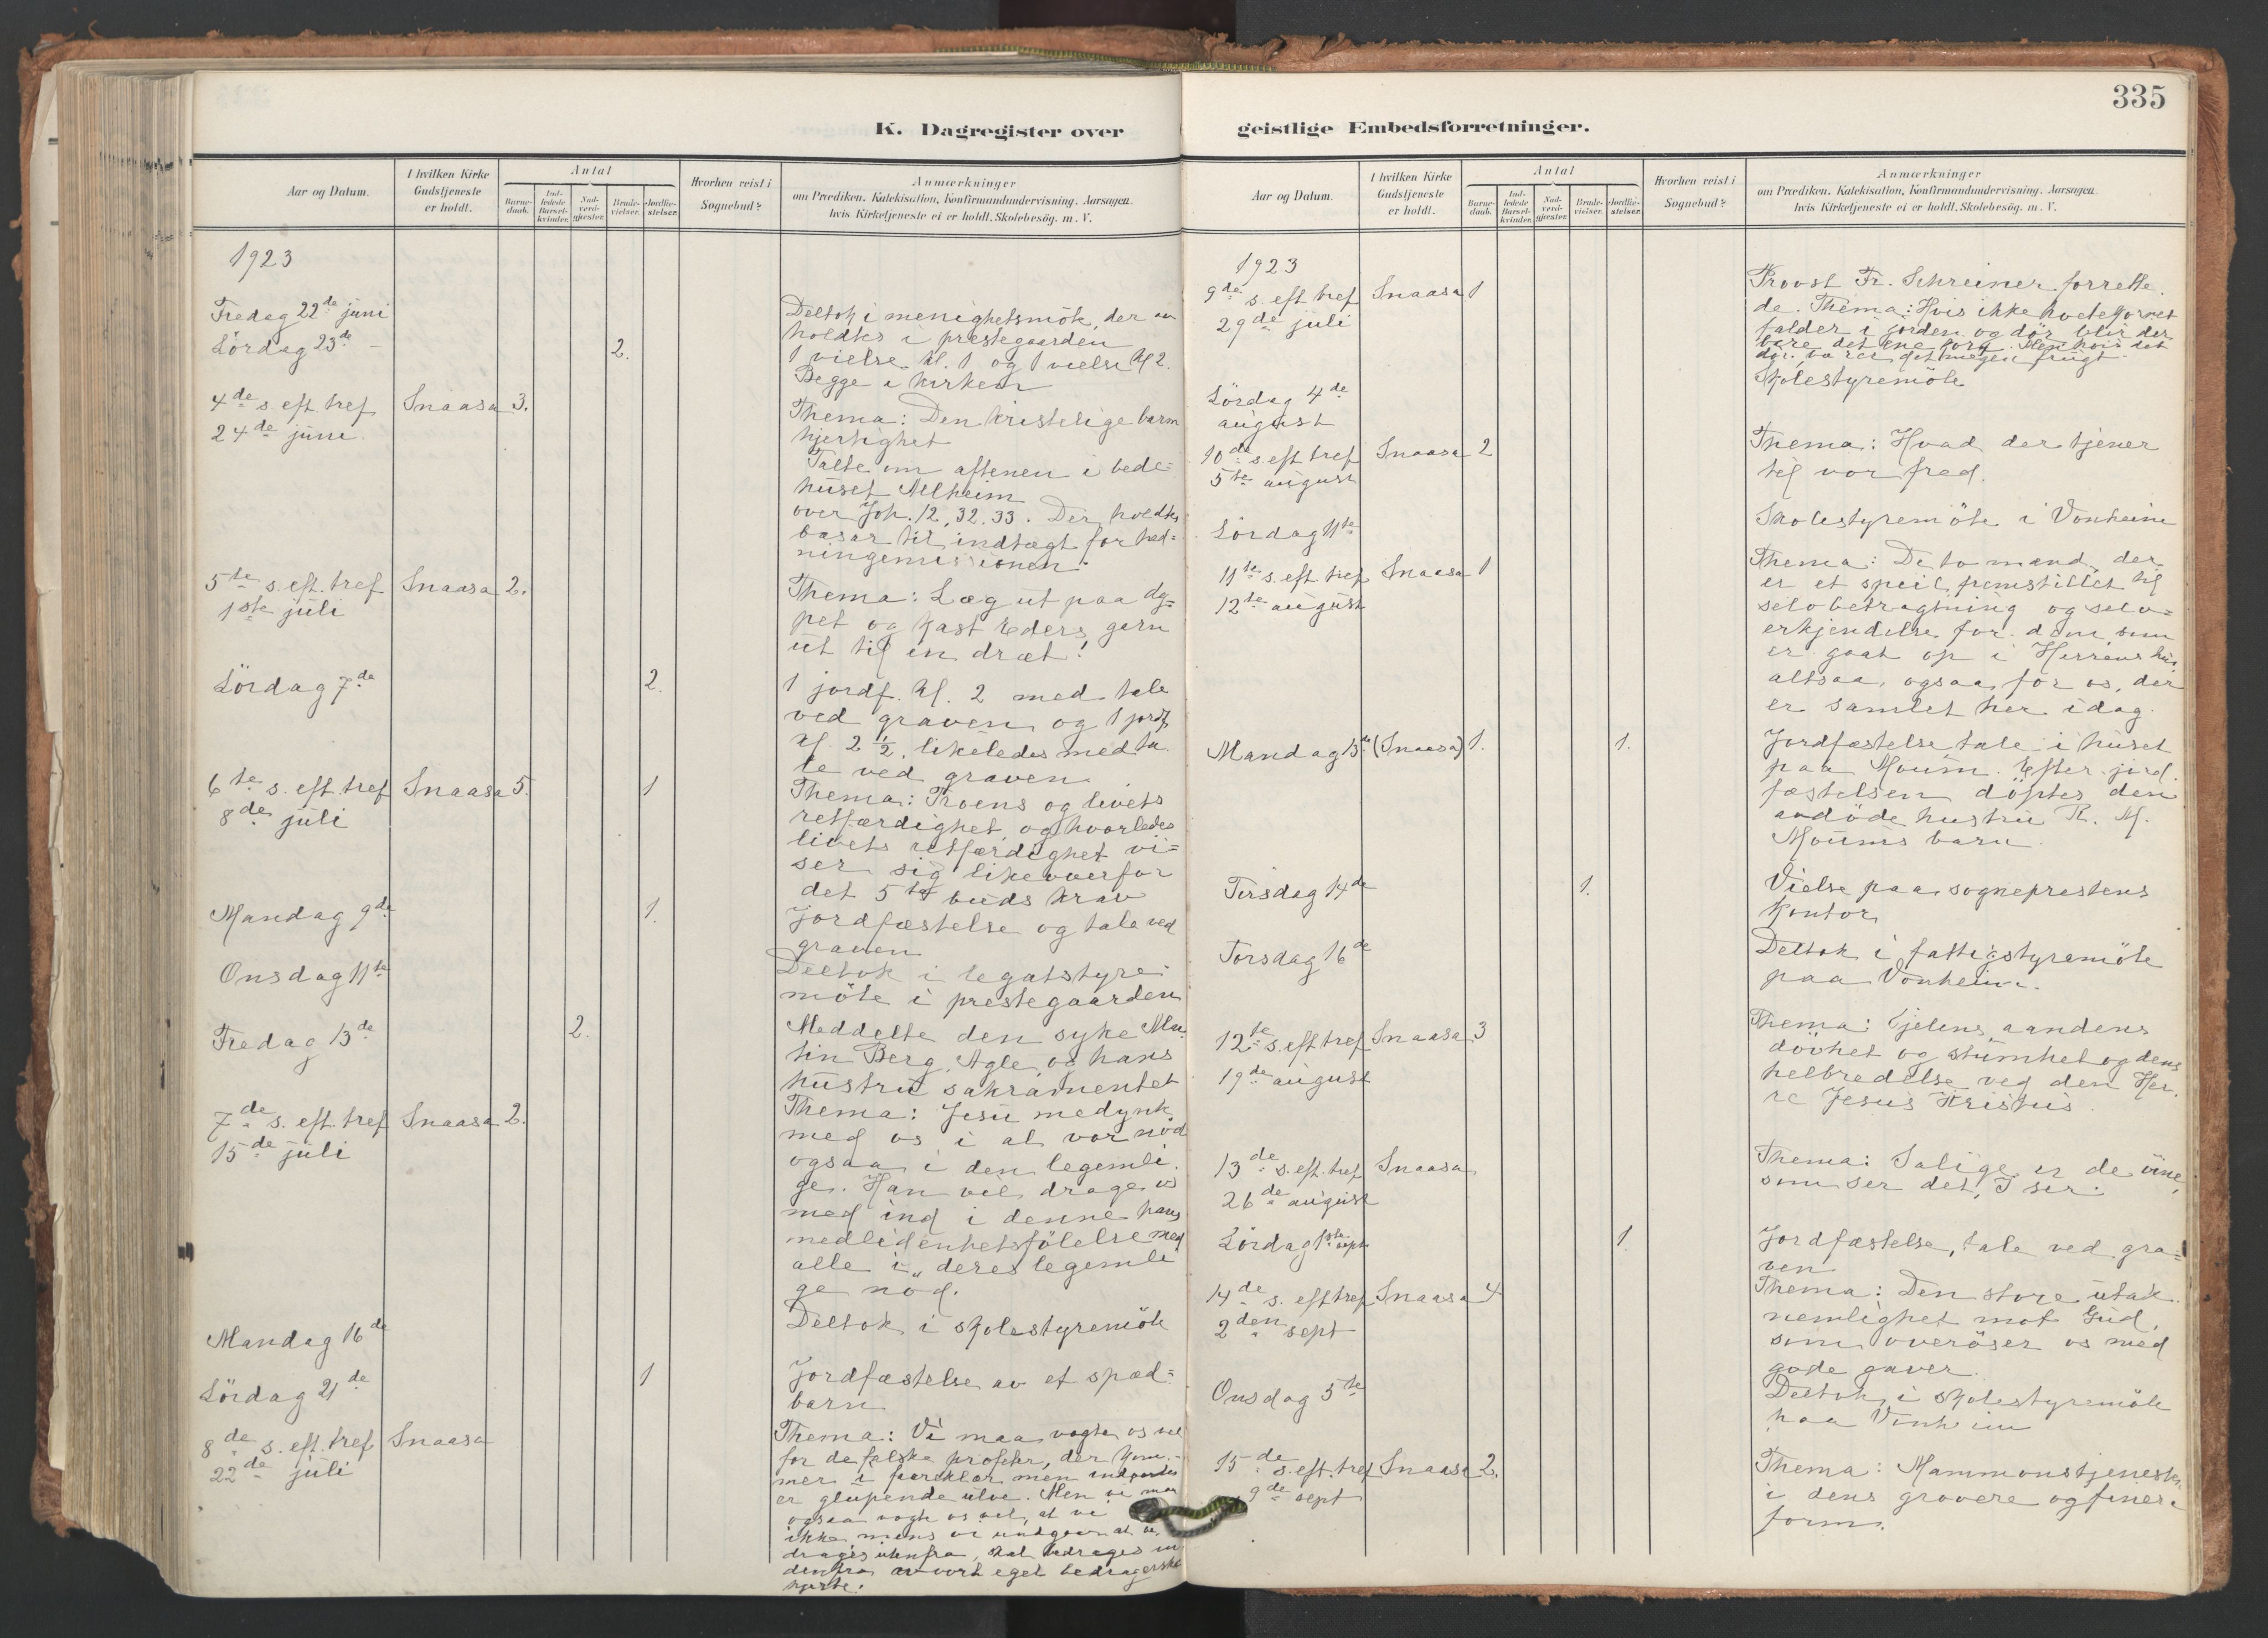 K. Dagregister over
Aar og Datum.
I hvilken Kirke
Gudstjeneste
er holdt.
Antal
Barne-
daab.
Ind-
ledede
Barsel-
kvinder.
Nad-
verd-
gjester.
Brude-
vielser.
Jordfæ-
stelser.
Hvorhen reist i
Sognebud?
Anmærkninger
om Prædiken, Katekisation, Konfirmandundervisning. Aarsagen
hvis Kirketjeneste ei er holdt. Skolebesög. m. V.
1923
Fredag 22de juni
Deltok i menighetsmöte, der av
holdtes i prestegaarden
Lördag 23de - 2.
1 vielse kl. 1 og 1 vielse kl 2.
Begge i kirken
4de s. eft. tref Snaasa 3.
24de juni.
Thema: Den kristelige barm
hjertighet
Talte om aftenen i bede=
huset Melheim
over Joh. 12, 32. 33. Der holdtes
basar til indtægt for hed=
ningemissionen.
5te s. eft. tref Snaasa 2.
1ste juli
Thema: Læg ut paa dy=
pet og kast Eders garn
ut til en dræt!
Lördag 7de 2.
1 jordf. kl. 2 med tale
ved graven og 1 jordf
kl. 2 ½, likeledes med ta
le ved graven
6te s. eft. tref Snaasa 5. 1
8de juli
Thema: Troens og livets
retfærdighet, og hvorledes
livets retfærdighet vi=
ser sig likeoverfor
det 5te buds krav
Mandag 9de 1.
Jordfæstelse og tale ved
graven
Onsdag 11te
Deltok i legatstyre
möte i prestegaarden
Fredag 13de 2.
Meddelte den syke
tin Berg, Agle, og hans
hustru sakramentet
7de s. eft. tref Snaasa 2.
15de juli
Thema: Jesu medynk
med os i al vor nöd
ogsaa i den legemli.
ge. Han vil drage os
med ind i denne hans
medlidenhetsfölelse med
alle i deres legemli
ge nöd.
Mandag 16de
Deltok i skolestyremöte
Lördag 21de 1
Jordfæstelse av et spæd=
barn
8de s. eft. tref Snaasa
22de juli
Thema: Vi maa vogte os vel
for de falske profeter, der kom=
mer i fareklær men indvortes
er glupende ulve. Men vi maa
ogsaa vogte os vel, at vi
ikke, mens vi undgaar at be
drages utenfra, skal bedrages in
denfra av vort eget bedragerske
hjerte.
335
geistlige Embedsforretninger.
Aar og Datum.
I hvilken Kirke
Gudstjeneste
er holdt.
Antal
Barne-
daab.
Ind-
ledede
Barsel-
kvinder.
Nad-
verd-
gjester.
Brude-
vielser.
Jordfæ-
stelser.
Hvorhen reist i
Sognebud?
Anmærkninger
om Prædiken, Katekisation, Konfirmandundervisning. Aarsagen
hvis Kirketjeneste ei er holdt, Skolebesög. m. V.
1923
9de s. eft tref Snaasa 1
29de juli
Provst Fr. Schreiner forrette.
de. Thema: Hvis ikke hvetekornet
falder i jorden og dör, blir det
bare det ene korn. Men hvis det
dör, bærer det megen frugt.
Lördag 4de
august
Skolestyremöte
10de s. eft tref Snaasa 2
5te august
Thema: Hvad der tjener
til vor fred.
Lördag 11te
Skolestyremöte i Vonheim
11te s. eft tref Snaasa 1
12te august
Thema: De to mænd, der
er et speil, fremstillet til
selvbetragtning og selv=
erkjendelse for dem, som
er gaat op i Herrens hus
altsaa ogsaa for os, der
er samlet her idag.
Mandag 13de (Snaasa) 1. 1.
Jordfæstelse tale i huset
paa Moum. Efter jord.
fæstelsen döptes den
avdöde hustru R. M.
Moums barn
Tirsdag 14de 1.
Vielse paa sogneprestens
kontor
Torsdag 16de
Deltok i fattigstyremöte
paa Vonheim.
12te s. eft tref Snaasa 3
19de august
Thema: Sjelens, aandens
dövhet og stumhet og dens
helbredelse ved den Her.
re Jesus Kristus.
13de s. eft. tref Snaasa
26de august
Thema: Salige er de öine,
som ser det, I ser.
Lördag 1ste sept 1
Jordfæstelse, tale ved gra=
ven
14de s. eft tref Snaasa 4
2den sept
Thema: Den store utak
nemlighet mot Gud,
som overöser os med
gode gaver.
Onsdag 5te
Deltok i skolestyremöte
paa Vonheim
15de s. eft. tref Snaasa 2.
9de sept
Thema: Mammonstjeneste
i dens grovere og finere
form.